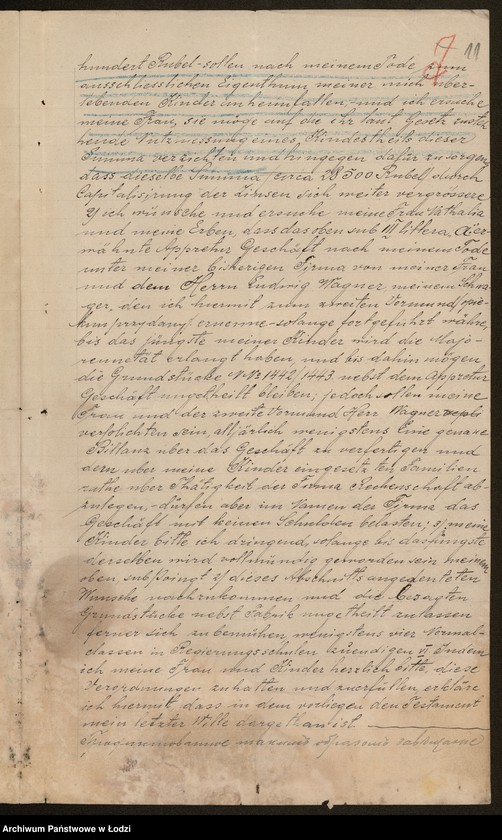 7 11
hundert Rubel-sollen nach meinem Tode zum
ausschliesslichen Eigenthum meiner mich über-
lebenden Kinder anheimfallen, und ich ersuche
meine Frau, sie möge auf die ihr laut Gesetz zuste-
hende Nutzniessung eines Kindestheils dieser
Summa verzichten und hingegen dafür zu sorgen,
dass dieselbe Summa, circa 28300 Rubel durch
Capitalisirung der Zinsen sich weiter vergrössere
ich wünsche und ersuche meine Frau Nathalia
und meine Erben, dass das oben sub III littera, a er-
wähnte Appretur Geschäft nach meinem Tode
unter meiner bisherigen Firma von meiner Frau
und dem Herrn Ludwig Wagner meinem Schwa-
ger, den ich hiermit zum zweiten Vormund
ernenne-solange fortgeführt währe,
bis das jüngste meiner Kinder wird die Majo-
rennetät erlangt haben, und bis dahin mögen
die Grundstücke N N: 1442/1443 nebst dem Appretur
Geschäft ungetheilt bleiben; jedoch sollen meine
Frau und der zweite Vormund Herr Wagner verpli
verfolichten sein, alljärlich wenigstens Eine genaue
Billanz über das Geschäft zu verfertigen und
dem über meine Kinder eingesetzten Familien
rathe über Thätigkeit der Firma Rechenschaft ab-
zulegen,-dürfen aber im Namen der Firma das
Geschäft mit keinen Schulden belasten; meine
Kinder bitte ich dringend, solange bis das jüngste
derselben wird vollmündig geworden sein meinem
oben, sub dieses Abschnitts angedeuteten
Wunsche nachzukommen und die besagten
Grundstücke nebst Fabrik ungetheilt zu lassen
ferner sich zu bemühen, wenigstens vier Normal-
classen in Regierungsschulen zu endigen VI Indem
ich meine Frau und Kinder herzlich bitte, diese
Verordnungen zu halten und zu erfüllen, erkläre
ich hiermit dass in dem vorliegenden Testament
mein letzter Wille dargethan ist.
таковымъ образомъ завѣщаніе
Archiwum Państwowe w Łodzi